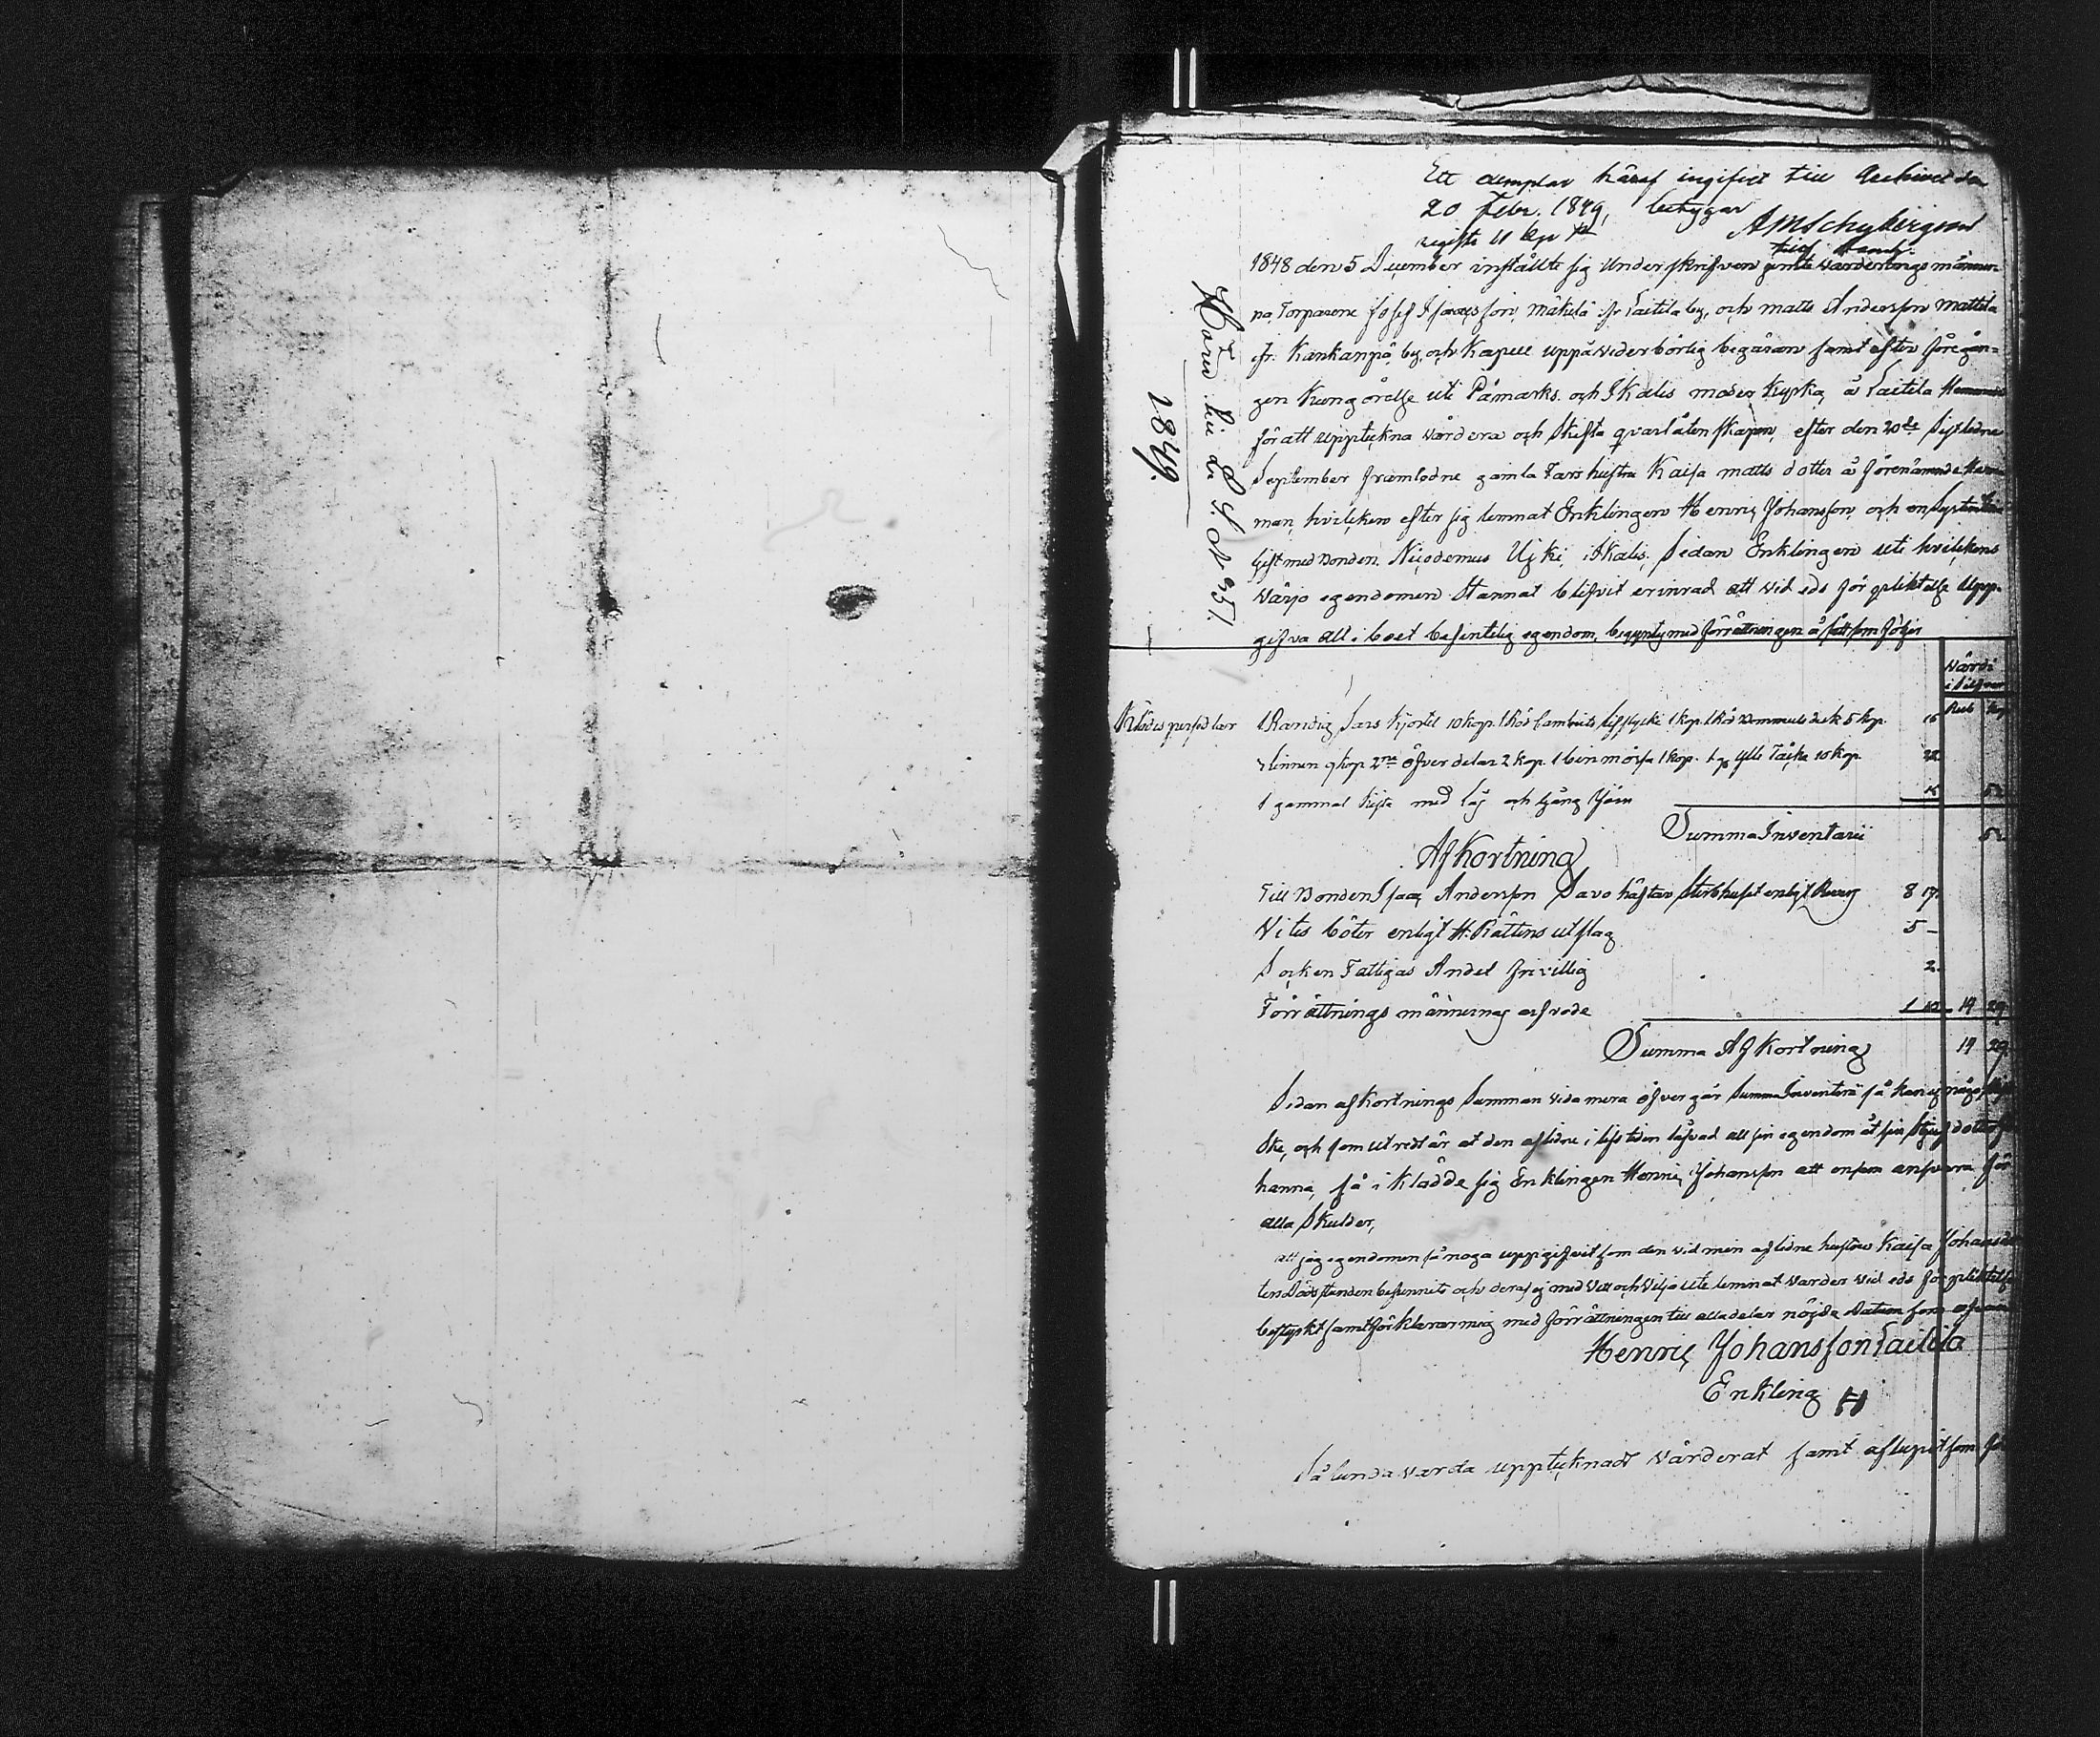 Ett exemplar häraf ingifvit till Archivet den
20 Febr. 1849, betygar
AMSchybergson
Hörer till den § N 251.
1849.
1848 den 5 December instälte sig Underskrifven jemte värderings männer-
na, Torparene Josef Isacsson Mäkelä fr Laitila by, och matts Andersson Mattila
fr. Kankanpä by och Kapell uppå vederbörlig begäran samt efter föregån-
gen Kungörelse uti Påmarks och Ikalis moder kyrka, å Laitila Hemman
för att uppteckna värdera och skifta qvarlåtenskapen, efter den 20de sistledne
September framledne gamla Fars hustru Kaisa matts dotter å förenämnde Hem
man, hvilken efter sig lemnat Enklingen Henric Johansson, och en
gift med Bonden Nicodemus i Ikalis. Sedan Enklingen uti hvilkens
värjo egendomen Stannat blifvit erinrad att vid eds förpliktelse Upp-
gifva allt i boet befintelig egendom, begyntes med förrättningen å sätt som följer
Värde
i Silfver
Rub Kop
Klädes persedlar 1 Randig Sars Kjortel 10 kop. 1 Röd Camlotts lifstycke 1 kop. 1 Röd Vammals 5 kop. 16
linnen 9 kop 2ne öfver delar 2 kop. 1 bin mössa 1 kop. 1 Ylle Täcke 10 kop 22
1 gammal Kista med lås och gång Järn
Summa Inventarii 52
Afkortning
Till Bonden Isaac Andersson Savo häftar Sterbhuset enligt Revers 8 17.
Vites böter enligt H. Rättens utslag 5 –
Socken Fattigas Andel frivillig 2.
Förrättnings männernas arfvode 1 10 14 29
Summa Af Kortning 14 29.
Sedan afkortnings Summan vida mera öfvergår Summa Inventarii så kan ej någo
Ske, och som utredt är at den aflidne i lifs tiden låfvad all sin egendom åt sin Stjuf dotter
hanna, så i klädde sig Enklingen Henric Johansson att ensam ansvara för
alla Skulder,
Att jag egendomen så noga uppgifvit som den vid min aflidne hustrus Kaisa Johans
ten Döds stunden befunnits och deraf ej med Vett och Vilja ute lemnat varder vid eds förpliktelse
bestyrkt samt förklarar mig med förrättningen till alla delar nöjde Datum som
Henric Johansson Laitila
Enkling H
Sålunda varda upptecknadt Värderat samt aflupit som